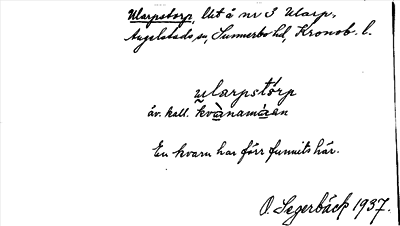 Ularpstorp, lht å nr 3 Ularp.
Angelstads sn, Sunnerbo hd, Kronob. l.
ularpstórp
äv. kall. kvànamàen
En kvarn har förr funnits här.
O. Segerbäck 1937.